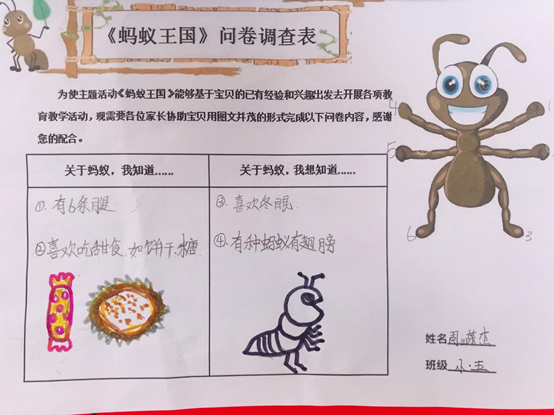 《蚂蚁王国》问卷调查表
为使主题活动《蚂蚁王国》能够基于宝贝的已有经验和兴趣出发去开展各项教
育教学活动，现需要各位家长协助宝贝用图文并茂的形式完成以下问卷内容，感谢
您的配合。
关于蚂蚁，我知道…… 关于蚂蚁，我想知道……
①. 有6条腿
③. 喜欢冬眠
②喜欢吃甜食.如饼干.糖
④. 有种蚂蚁有翅膀
4
1
5
6
3
姓名 周
班级 小·五